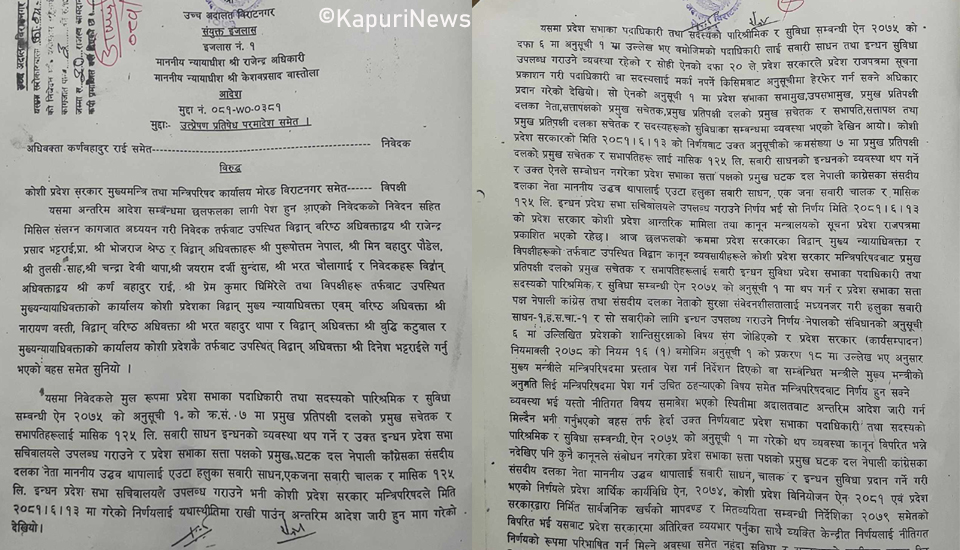 ©KapuriNews
उच्च अदालत विराटनगर
संयुक्त इजलास
इजलास नं. १
माननीय न्यायाधीश श्री राजेन्द्र अधिकारी
माननीय न्यायाधीश श्री केशवप्रसाद वास्तोला
आदेश
मुद्दा नं. ०८१-WO-०३८१
मुद्दाः- उत्प्रेषण प्रतिषेध परमादेश समेत ।
अधिवक्ता कर्णवहादुर राई समेत---निवेदक
विरुद्ध
कोशी प्रदेश सरकार मुख्यमन्त्रि तथा मन्त्रिपरिषद कार्यालय मोरङ विराटनगर समेत------ विपक्षी
यसमा अन्तरिम आदेश सम्बन्धमा छलफलका लागी पेश हुन आएको निवेदकको निवेदन सहित
मिसिल संलग्न कागजात अध्ययन गरी निवेदक तर्फवाट उपस्थित विद्वान् वरिष्ठ अधिवक्ताद्वय श्री राजेन्द्र
प्रसाद भट्टराई,प्रा. श्री भोजराज श्रेष्ठ र विद्वान् अधिवक्ताहरू श्री पुरूषोत्तम नेपाल, श्री मिन वहादुर पौडेल,
श्री तुलसी साह,श्री चन्द्रा देवी थापा,श्री जयराम दर्जी सुन्दास, श्री भरत चौलागाई र निवेदकहरू विद्वान्
अधिवक्ताद्वय श्री कर्ण वहादुर राई, श्री प्रेम कुमार घिमिरेले तथा विपक्षीहरू तर्फवाट उपस्थित
मुख्यन्यायाधिवक्ताको कार्यालय कोशी प्रदेशका विद्वान् मुख्य न्यायाधिवक्ता एवम् वरिष्ठ अधिवक्ता श्री
नारायण वस्ती, विद्वान् वरिष्ठ अधिवक्ता श्री भरत वहादुर थापा र विद्वान् अधिवक्ता श्री वुद्धि कटुवाल र
मुख्यन्यायाधिवक्ताको कार्यालय कोशी प्रदेशकै तर्फवाट उपस्थित् विद्वान् अधिवक्ता श्री दिनेश भट्टराईले गर्नु
भएको वहस समेत सुनियो ।
यसमा निवेदकले मुल रूपमा प्रदेश सभाका पदाधिकारी तथा सदस्यको पारिश्रमिक र सुविधा
सम्वन्धी ऐन २०७५ को अनुसूची १.को क्र.सं.७ मा प्रमुख प्रतिपक्षी दलको प्रमुख सचेतक र
सभापतिहरूलाई मासिक १२५ लि. सवारी साधन इन्धनको व्यवस्था थप गर्ने र उक्त इन्धन प्रदेश सभा
सचिवालयले उपलब्ध गराउने र प्रदेश सभाका सत्ता पक्षको प्रमुख घटक दल नेपाली काग्रेसका संसदीय
दलका नेता माननीय उद्धव थापालाई एउटा हलुका सवारी साधन,एकजना सवारी चालक र मासिक १२५
लि. इन्धन प्रदेश सभा सचिवालयले उपलब्ध गराउने भनी कोशी प्रदेश सरकार मन्त्रिपरिषदले मिति
२०८१।६।१३ मा गरेको निर्णयलाई यथास्थीतिमा राखी पाउँन् अन्तरिम आदेश जारी हुन माग गरेको
देखियो।
यसमा प्रदेश सभाका पदाधिकारी तथा सदस्यको पारिश्रमिक र सुविधा सम्वन्धी ऐन २०७५ को
दफा ६ मा अनुसूची १ मा उल्लेख भए वमोजिमको पदाधिकारी लाई सवारी साधन तथा इन्धन सुविधा
उपलब्ध गराउने व्यवस्था रहेको र सोही ऐनको दफा २० ले प्रदेश सरकारले प्रदेश राजपत्रमा सूचना
प्रकाशन गरी पदाधिकारी वा सदस्यलाई मर्का नपर्ने किसिमवाट अनुसूचीमा हेरफेर गर्न सक्ने अधिकार
प्रदान गरेको देखियो। सो ऐनको अनुसूची १ मा प्रदेश सभाका सभामुख,उपसभामुख, प्रमुख प्रतिपक्षी
दलका नेता,सत्तापक्षको प्रमुख सचेतक,प्रमुख प्रतिपक्षी दलको प्रमुख सचेतक र सभापति,सत्तापक्ष तथा
प्रमुख प्रतिपक्षी दलका सचेतक र सदस्यहरूको सुविधाका सम्वन्धमा व्यवस्था भएको देखिन आयो। कोशी
प्रदेश सरकारको मिति २०८१।६।१३ को निर्णयवाट उक्त अनुसूचीको क्रमसंख्या ७ मा प्रमुख प्रतिपक्षी
दलको प्रमुख सचेतक र सभापतिहरू लाई मासिक १२५ लि. सवारी साधनको इन्धनको व्यवस्था थप गर्ने
र उक्त ऐनले सम्वोधन नगरेका प्रदेश सभाका सत्ता पक्षको प्रमुख घटक दल नेपाली कांग्रेसका संसदीय
दलका नेता माननीय उद्धव थापालाई एउटा हलुका सवारी साधन, एक जना सवारी चालक र मासिक
१२५ लि. इन्धन प्रदेश सभा सचिवालयले उपलब्ध गराउने निर्णय भई सो निर्णय मिति २०८१।६।१३
को प्रदेश सरकार कोशी प्रदेश आन्तरिक मामिला तथा कानून मन्त्रालयको सूचना प्रदेश राजपत्रमा
प्रकाशित भएको रहेछ। आज छलफलको क्रममा प्रदेश सरकारका विद्वान् मुख्य न्यायाधिवक्ता र
विपक्षीहरूको तर्फवाट उपस्थित विद्वान कानून व्यवसायीहरूले कोशी प्रदेश सरकार मन्त्रिपरिषदवाट प्रमुख
प्रतिपक्षी दलको प्रमुख सचेतक र सभापतिहरूलाई सवारी इन्धन सुविधा प्रदेश सभाका पदाधिकारी तथा
सदस्यको पारिश्रमिक र सुविधा सम्वन्धी ऐन २०७५ को अनुसूची १ मा थप गर्न र प्रदेश सभाका सत्ता
पक्ष नेपाली कांग्रेस तथा संसदीय दलका नेताको सुरक्षा संवेदनशीलतालाई मध्यनजर गरी हलुका सवारी
साधन-१,ह.स.चा.-१ र सो सवारीको लागि इन्धन उपलब्ध गराउने निर्णय नेपालको संविधानको अनुसूची
६ मा उल्लिखित प्रदेशको शान्तिसुरक्षाको विषय संग जोडिएको र प्रदेश सरकार (कार्यसम्पादन)
नियमावली २०७८ को नियम १६ (१) वमोजिम अनुसूची १ को प्रकरण १८ मा उल्लेख भए अनुसार
मुख्य मन्त्रीले मन्त्रिपरिषदमा प्रस्ताव पेश गर्न निर्देशन दिएको वा सम्वन्धित मन्त्रीले मुख्य मन्त्रीको
अनुमति लिई मन्त्रिपरिषदमा पेश गर्न उचित ठहर्‍याएको विषय समेत मन्त्रिपरिषदवाट निर्णय हुन सक्ने
व्यवस्था भई यस्तो नीतिगत विषय समावेश भएको स्थितीमा अदालतवाट अन्तरिम आदेश जारी गर्न
मिल्दैन भनी गर्नुभएको वहस तर्फ हेर्दा उक्त निर्णयवाट प्रदेश सभाका पदाधिकारी तथा सदस्यको
पारिश्रमिक र सुविधा सम्वन्धी, ऐन २०७५ को अनुसूची १ मा गरेको थप व्यवस्था कानून विपरित भन्ने
नदेखिए पनि कुनै कानूनले संबोधन नगरेका प्रदेश सभाका सत्ता पक्षको प्रमुख घटक दल नेपाली कांग्रेसका
संसदीय दलका नेता माननीय उद्धव थापालाई सवारी साधन, चालक र इन्धन सुविधा प्रदान गर्ने गरी
भएको निर्णयले प्रदेश आर्थिक कार्यविधि ऐन, २०७४, कोशी प्रदेश विनियोजन ऐन २०८१ एवं प्रदेश
सरकारद्वारा निर्मित सार्वजनिक खर्चको मापदण्ड र मितव्ययिता सम्वन्धी निर्देशिका २०७९ समेतको
विपरित भई यसवाट प्रदेश सरकारमा अतिरिक्त व्ययभार पर्नुका साथै व्यक्ति केन्द्रीत निर्णयलाई नीतिगत
निर्णयको रूपमा परिभाषित गर्न मिल्ने अवस्था समेत नहुंदा सुविधा र